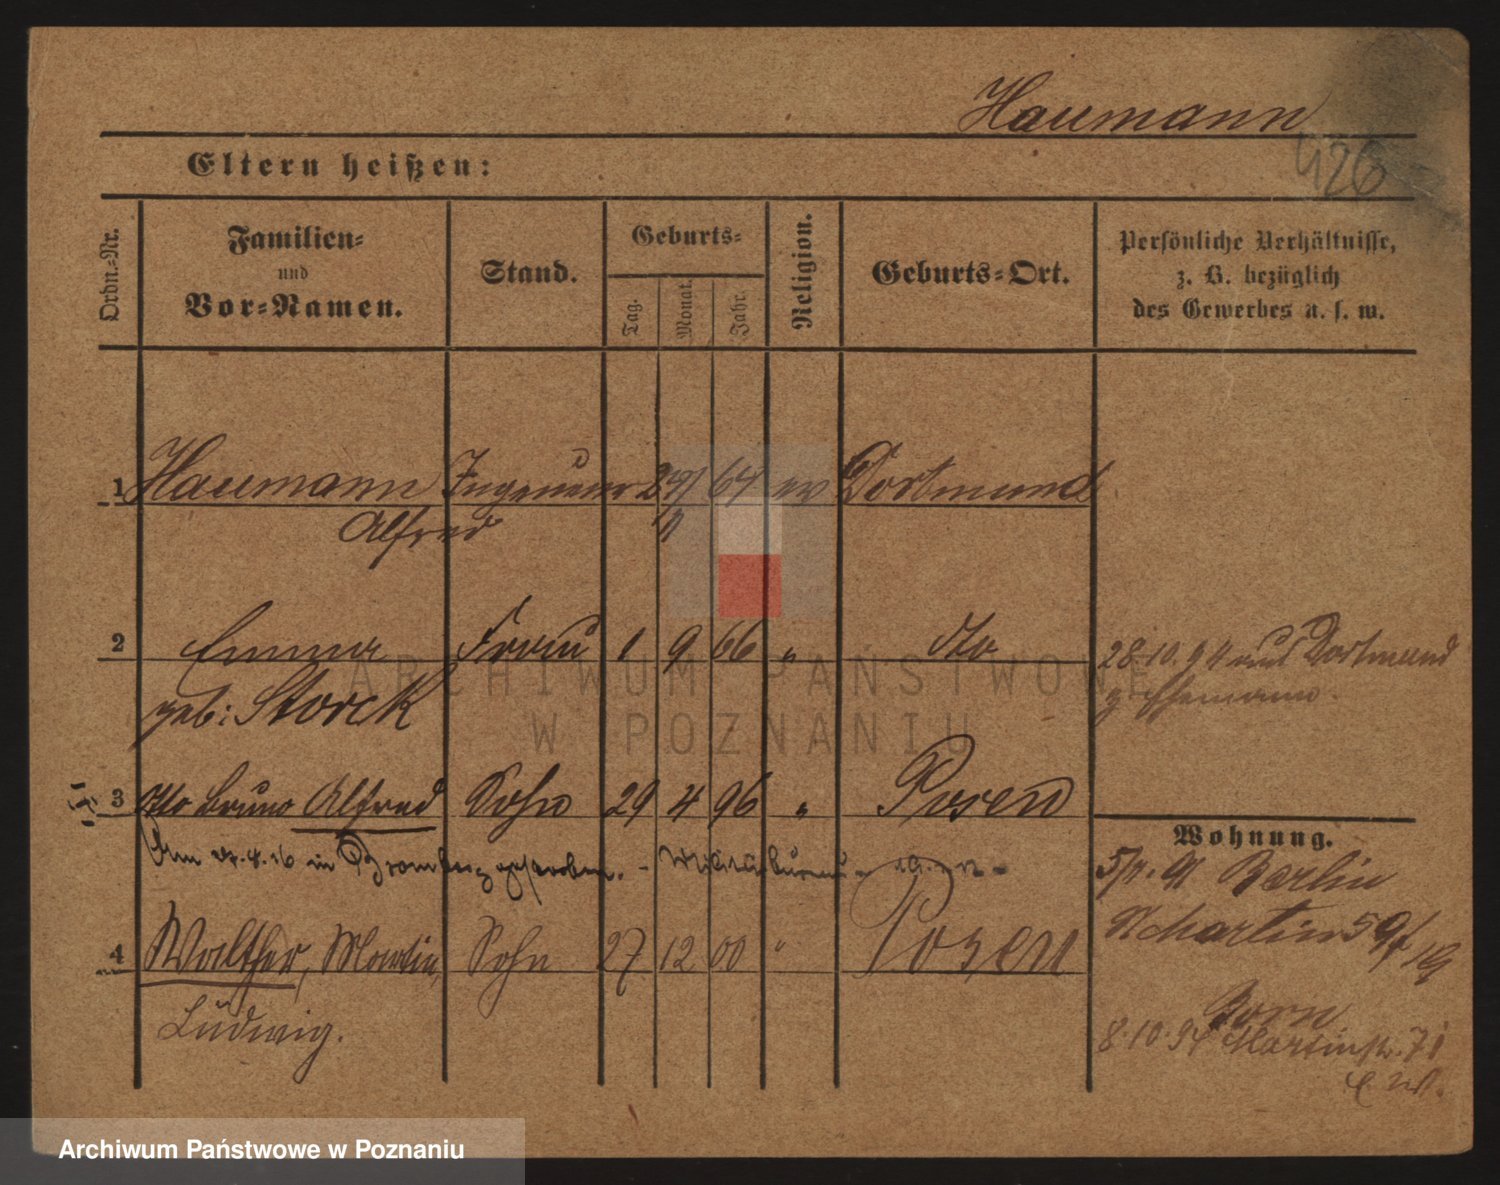 Haumann
426
Eltern heißen:
Ordn.-Nr.
Familien-
und
Vor-Namen.
Stand.
Geburts-
Tag.
Monat.
Jahr.
Religion.
Geburts-Ort.
Persönliche Verhältnisse,
z. B. bezüglich
des Gewerbes u. s. w.
1 Haumann Ingenieur 64 ev Dortmund
Alfred
2 Emma Frau 1 9 66 " dto
geb: Storck
28.10.94 aus Dortmund
z. Ehemann.
3 Otto Bruno Alfred Sohn 29 4 96 " Posen
Am 27.4.16 in Bromberg gestorben. -
Wohnung.
Berlin
Martin 59/
4 Walther, Martin, Sohn 27 12 00 " Posen
Ludwig.
Born
8.10.94 Martinstr. 71
ARCHIWUM PAŃSTWOWE
W POZNANIU
Archiwum Państwowe w Poznaniu